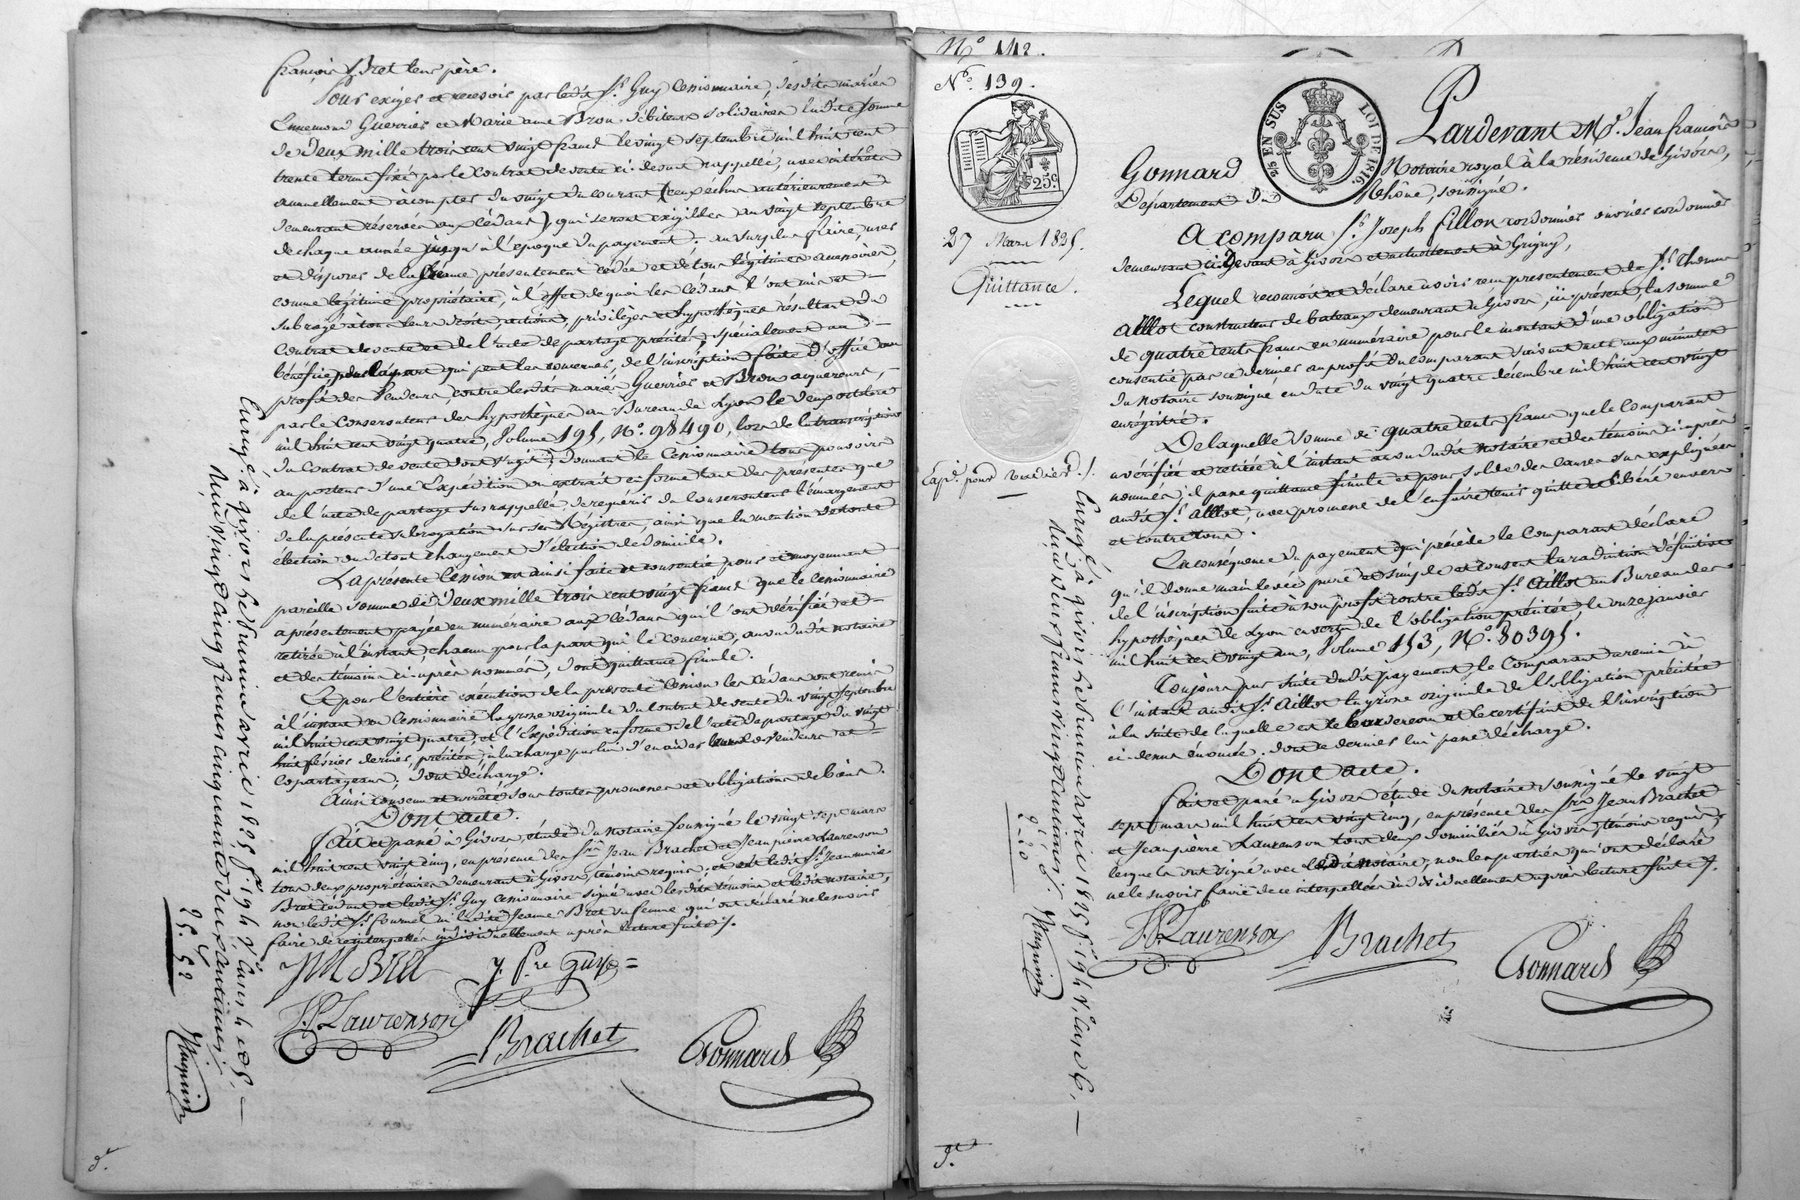 françois Bret leur père.
Pour exiger et recevoir par ledit Sr. Guy Cessionnaire, desdits mariés
Ennemond Guerrier et Marie anne Bron, débiteurs solidaires ladite somme
de deux mille trois cent vingt francs le vingt septembre mil huit cent
trente terme fixé par le contrat de vente ci-devant rappellé, avec intérêts
annuellement à compter du vingt du courant (ceux echus antérieurement
demeurant réservés aux cédans) qui seront exigibles au vingt septembre
de chaque année jusqu'à l'epoque du payement; au surplus faire, user
et disposer de la somme présentement cédée et de tous légitimes accessoires,
comme légitime propriétaire, à l'effet de quoi les cédans l'ont mis et
subrogé à tous leurs droits, actions, privilèges et hypothèques résultant du
contrat de vente et de l'acte de partage précités, spécialement au
bénéfice pour la part qui peut les concerner, de l'inscription faite d'office au
profit des Vendeurs, contre lesdits mariés Guerrier et Bron acquereurs,
par le Conservateur des hypothèques au Bureau de Lyon le deux octobre
mil huit cent vingt quatre, Volume 195, No. 98490, lors de la transcription
du Contrat de vente dont s'agit; donnant le Cessionnaire tous pouvoirs
au porteur d'une Expédition ou extrait en forme tant des présentes que
de l'acte de partage susrappellé, de requérir du Conservateur l'émargement
de la présente subrogation sur ses Régistres, ainsi que la mention de toute
élection ou de tout changement d'élection de domicile.
La présente Cession est ainsi faite et consentie pour et moyennant
pareille somme de deux mille trois cent vingt francs que le Cessionnaire
a présentement payée en numéraire aux Cédans qui l'ont vérifiée et
retirée à l'instant, chacun pour la part qui le concerne, au vu dudit notaire
et des témoins ci-après nommés, dont quittance finale.
Et pour l'entière exécution de la présente Cession les Cédans ont remis
à l'instant au Cessionnaire la grosse originale du contrat de vente du vingt septembre
mil huit cent vingt quatre, et l'Expédition en forme de l'acte de partage du vingt
huit février dernier, précités, à la charge par lui d'en aider lesdits vendeurs et
copartageans; dont décharge.
Ainsi convenu et arrêté sous toutes promesses et obligations de biens.
Dont acte.
Fait et passé à Givors, étude du notaire soussigné le vingt sept mars
mil huit cent vingt cinq, en présence des Srs. Jean Brachet et Jean pierre Laurenson
tous deux propriétaires demeurant à Givors, témoins requis; et ont ledit Sr. Jean marie
Bret cédant et ledit Sr. Guy Cessionnaire signé avec lesdits témoins et ledit notaire,
non ledit Sr. fournel ni ladite Jeanne Bret sa femme qui ont déclaré ne le savoir
faire de ce interpellés individuellement après lecture faite ./.
JM Bret
J. Pre Guy
J.P. Laurenson
Brachet
Gonnard
Enregé. à givors le premier avril 1825 fo. 194 Vo. cases 4 et 5.
Reçu vingt cinq francs cinquante deux centimes.
25 f. 52
d.t
No. 142.
No. 139.
25c.
27 Mars 1825.
Quittance.
25 EN SUS
LOI DE 1816.
Pardevant Me. Jean françois
Gonnard Notaire royal à la résidence de Givors,
Département du Rhône, soussigné.
A comparu Sr. Joseph Fillon cordonnier ouvrier cordonnier
demeurant ci-devant à Givors et actuellement à Grigny,
Lequel reconnoit et déclare avoir reçu présentement de Sr. Thomas
Aillot constructeur de bateaux demeurant à Givors, ici présent, la somme
de quatre cents francs en numéraire, pour le montant d'une obligation
consentie par ce dernier au profit du comparant suivant acte aux minutes
du Notaire soussigné en date du vingt quatre décembre mil huit cent vingt
enrégistré.
De laquelle somme de quatre cents francs que le Comparant
a vérifiée et retirée à l'instant au vu dudit notaire et des témoins ci-après
nommés, il passe quittance finale et pour solde des causes sus expliquées
audit Sr. Aillot, avec promesse de l'en faire tenir quitte et libéré envers
et contre tous.
En conséquence du payement qui précède le Comparant déclare
qu'il donne main levée pure et simple et consent la radiation définitive
de l'inscription faite à son profit contre ledit Sr. Aillot au Bureau des
hypothèques de Lyon en vertu de l'obligation précitée, le onze janvier
mil huit cent vingt un, Volume 153, No. 80395.
Toujours par suite dudit payement, le Comparant a remis à
l'instant audit Sr. Aillot la grosse originale de l'obligation précitée
à la suite de laquelle est le bordereau et le certificat de l'inscription
ci-dessus énoncée. dont ce dernier lui passe décharge.
Dont acte.
Fait et passé à Givors étude du notaire soussigné le vingt
sept mars mil huit cent vingt cinq, en présence des Srs. Jean Brachet
et Jean pierre Laurenson tous deux domiciliés à Givors, témoins requis,
lesquels ont signé avec ledit notaire, non les parties qui ont déclaré
ne le savoir faire de ce interpellées individuellement après lecture faite ./.
J.P. Laurenson
Brachet
Gonnard
Enregé. à givors le premier avril 1825 fo. 194 Vo. case 6.
Reçu deux francs vingt centimes.
2 f. 20
d.t